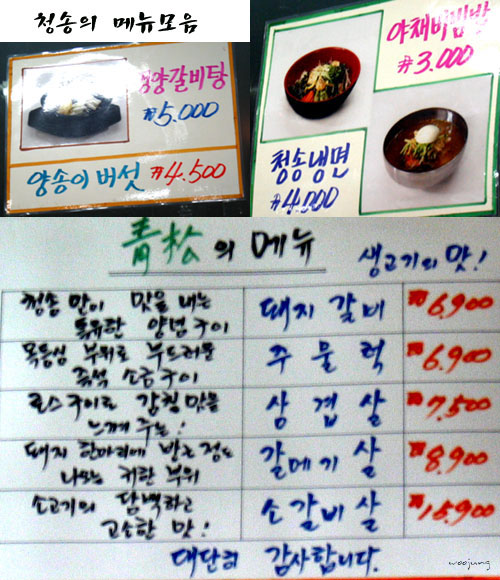 청송의 메뉴모음
영양갈비탕
₩5,000
양송이버섯 ₩4,500
야채비빔밥
₩3,000
청송냉면
₩4,000
青松의 메뉴
생고기의 맛!
청송 만이 맛을 내는
특유한 양념구이
돼지 갈비
₩6,900
목등심 부위로 부드러운
즉석 소금구이
주물럭
₩6,900
로스구이로 감칠맛을
느끼게 주는!
삼겹살
₩7,500
돼지 한마리에 반근정도
나오는 귀한 부위
갈메기살
₩8,900
소고기의 담백하고
고소한 맛!
소갈비살
₩15,900
대단히 감사합니다.
woojung